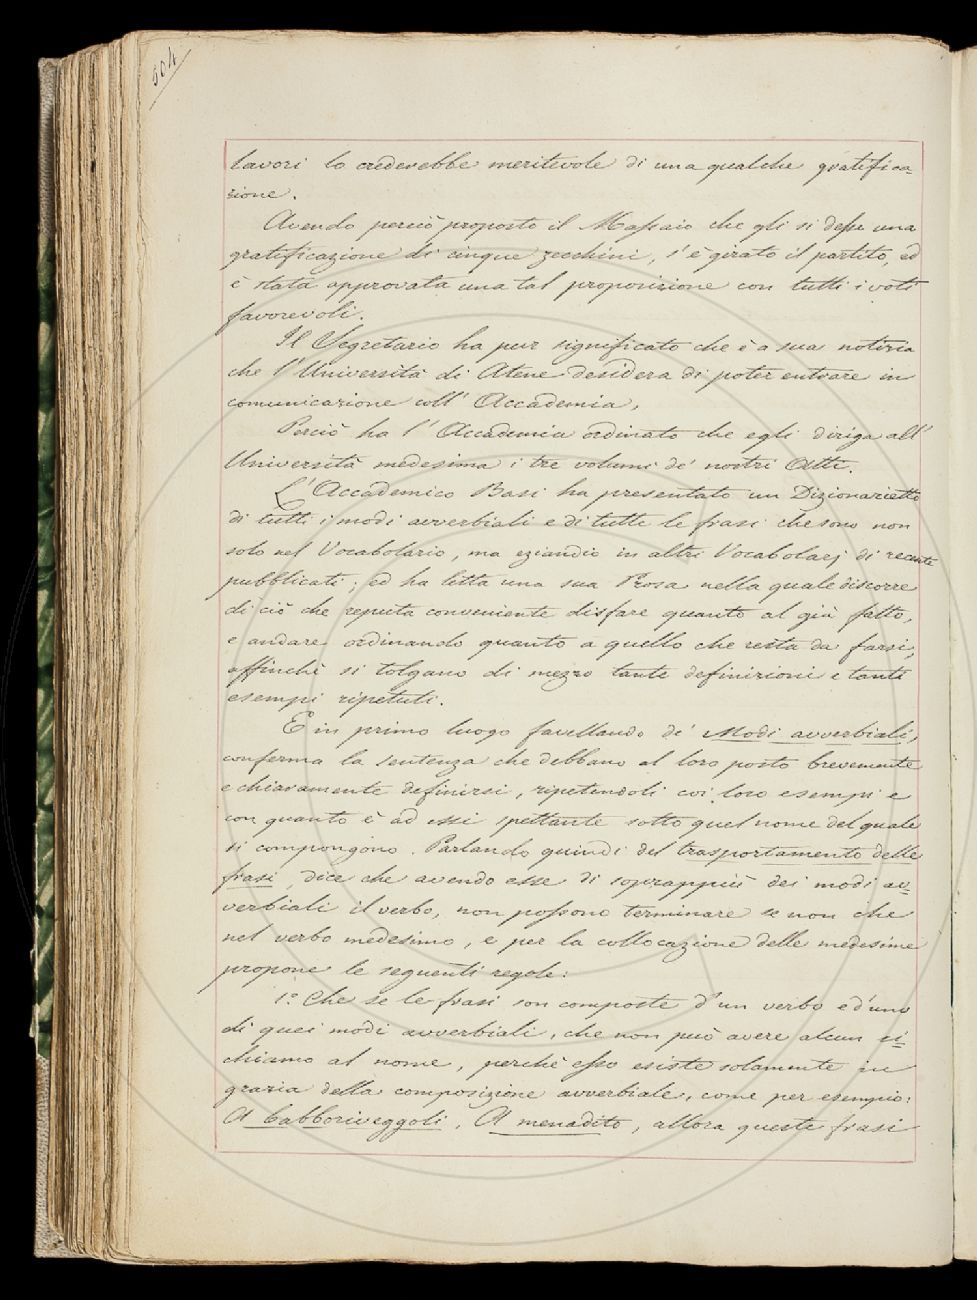 504
lavori lo crederebbe meritevole di una qualche gratifica=
zione.
Avendo perciò proposto il Massaio che gli si desse una
gratificazione di cinque zecchini, s'è girato il partito, ed
è stata approvata una tal proposizione con tutti i voti
favorevoli.
Il Segretario ha pur significato che è a sua notizia
che l'Università di Atene desidera di poter entrare in
comunicazione coll'Accademia,
Perciò ha l'Accademia ordinato che egli diriga all'
Università medesima i tre volumi de' nostri Atti.
L'Accademico Basi ha presentato un Dizionarietto
di tutti i modi avverbiali e di tutte le frasi che sono non
solo nel Vocabolario, ma eziandio in altri Vocabolarj di recente
pubblicati; ed ha letta una sua Prosa nella quale discorre
di ciò che reputa conveniente disfare quanto al già fatto,
e andare ordinando quanto a quello che resta da farsi,
affinchè si tolgano di mezzo tante definizioni e tanti
esempi ripetuti.
E in primo luogo favellando de' Modi avverbiali,
conferma la sentenza che debbano al loro posto brevemente
e chiaramente definirsi, ripetendoli coi loro esempi e
con quanto è ad essi spettante sotto quel nome del quale
si compongono. Parlando quindi del trasportamento delle
frasi, dice che avendo esse di soprappiù dei modi av=
verbiali il verbo, non possono terminare se non che
nel verbo medesimo, e per la collocazione delle medesime
propone le seguenti regole:
1.º Che se le frasi son composte d'un verbo e d'uno
di quei modi avverbiali, che non può avere alcun ri=
chiamo al nome, perchè esso esiste solamente in
grazia della composizione avverbiale, come per esempio:
A babboriveggoli, A menadito, allora queste frasi